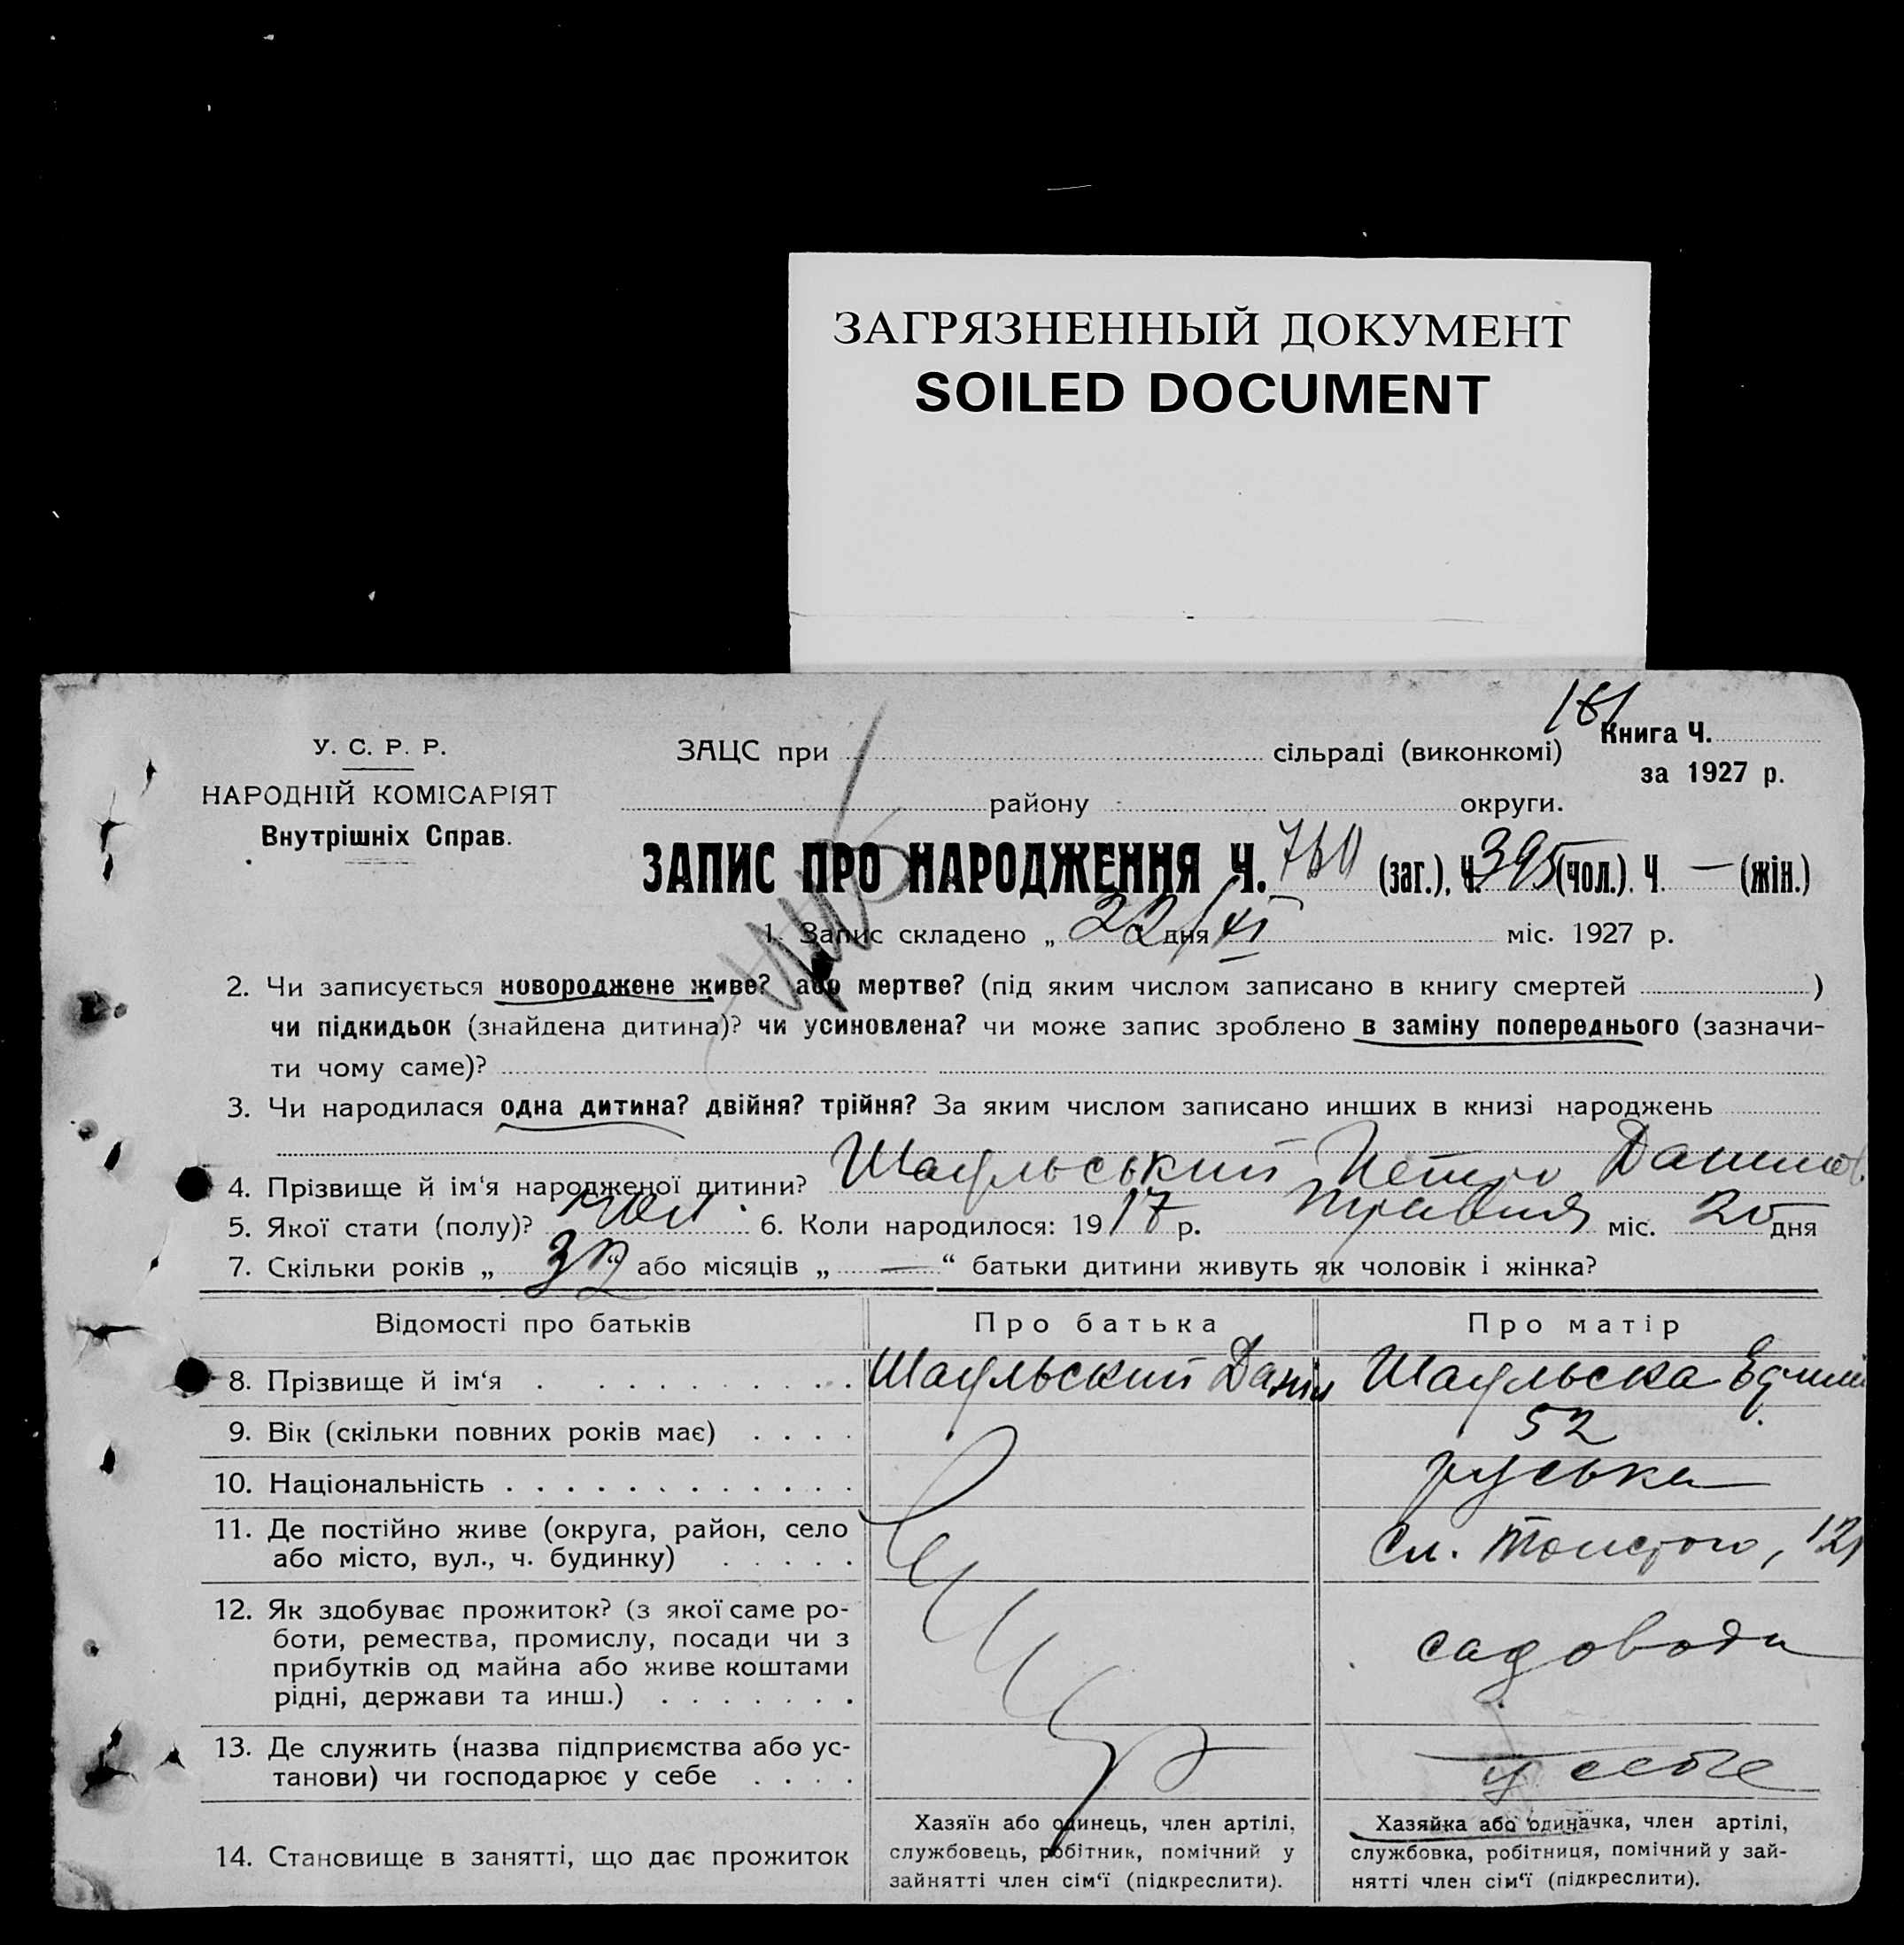 ЗАГРЯЗНЕННЫЙ ДОКУМЕНТ
SOILED DOCUMENT
У. С. Р. Р.
НАРОДНІЙ КОМІСАРІЯТ
Внутрішніх Справ.
ЗАЦС при сільраді (виконкомі)
161
Книга Ч.
за 1927 р.
району округи.
ЗАПИС ПРО НАРОДЖЕННЯ Ч. 760 (заг.), Ч. 395 (чол.). Ч. — (жін.)
1. Запис складено „ 22 дня XI міс. 1927 р.
2. Чи записується новороджене живе? або мертве? (під яким числом записано в книгу смертей )
чи підкидьок (знайдена дитина)? чи усиновлена? чи може запис зроблено в заміну попереднього (зазначи-
ти чому саме)?
3. Чи народилася одна дитина? двійня? трійня? За яким числом записано инших в книзі народжень
4. Прізвище й ім‘я народженої дитини? Шаульський Петро Данилов
5. Якої стати (полу)? чол. 6. Коли народилося: 1917 р. травня міс. 20 дня
7. Скільки років „ 32 “ або місяців „ — “ батьки дитини живуть як чоловік і жінка?
Відомості про батьків Про батька Про матір
8. Прізвище й ім‘я Шаульский Данил Шаульська
9. Вік (скільки повних років має) 52
10. Національність руська
11. Де постійно живе (округа, район, село
або місто, вул., ч. будинку) Сл. Толстого, 121
12. Як здобуває прожиток? (з якої саме ро-
боти, ремества, промислу, посади чи з
прибутків од майна або живе коштами
рідні, держави та инш.) садоводи
13. Де служить (назва підприємства або ус-
танови) чи господарює у себе у себе
14. Становище в занятті, що дає прожиток
Хазяїн або одинець, член артілі,
службовець, робітник, помічний у
зайнятті член сім‘ї (підкреслити).
Хазяйка або одиначка, член артілі,
службовка, робітниця, помічний у зай-
нятті член сім‘ї (підкреслити).